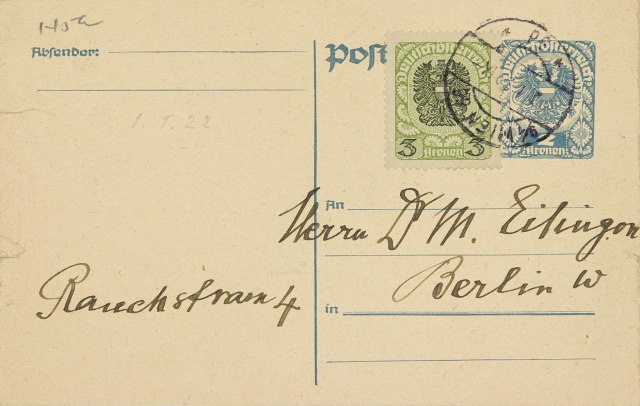 Absender:
1.1.22
Post
Deutschösterreich
3 3
Kronen
Deutschösterreich
2
Kronen
WIEN
An
Herrn Dr M. Eitingon
Berlin W
in
Rauchstrasse 4